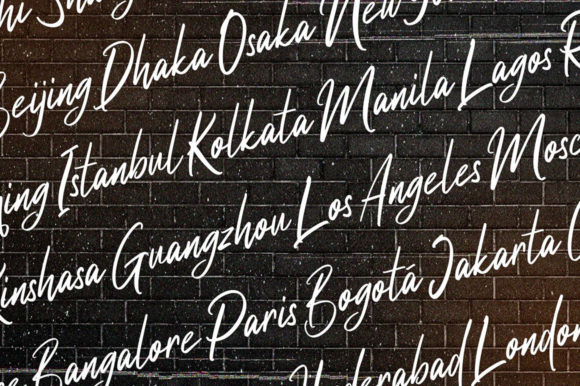 Beijing Dhaka Osaka New
Istanbul Kolkata Manila Lagos
Kinshasa Guangzhou Los Angeles
Bangalore Paris Bogotá Jakarta
Hyderabad London